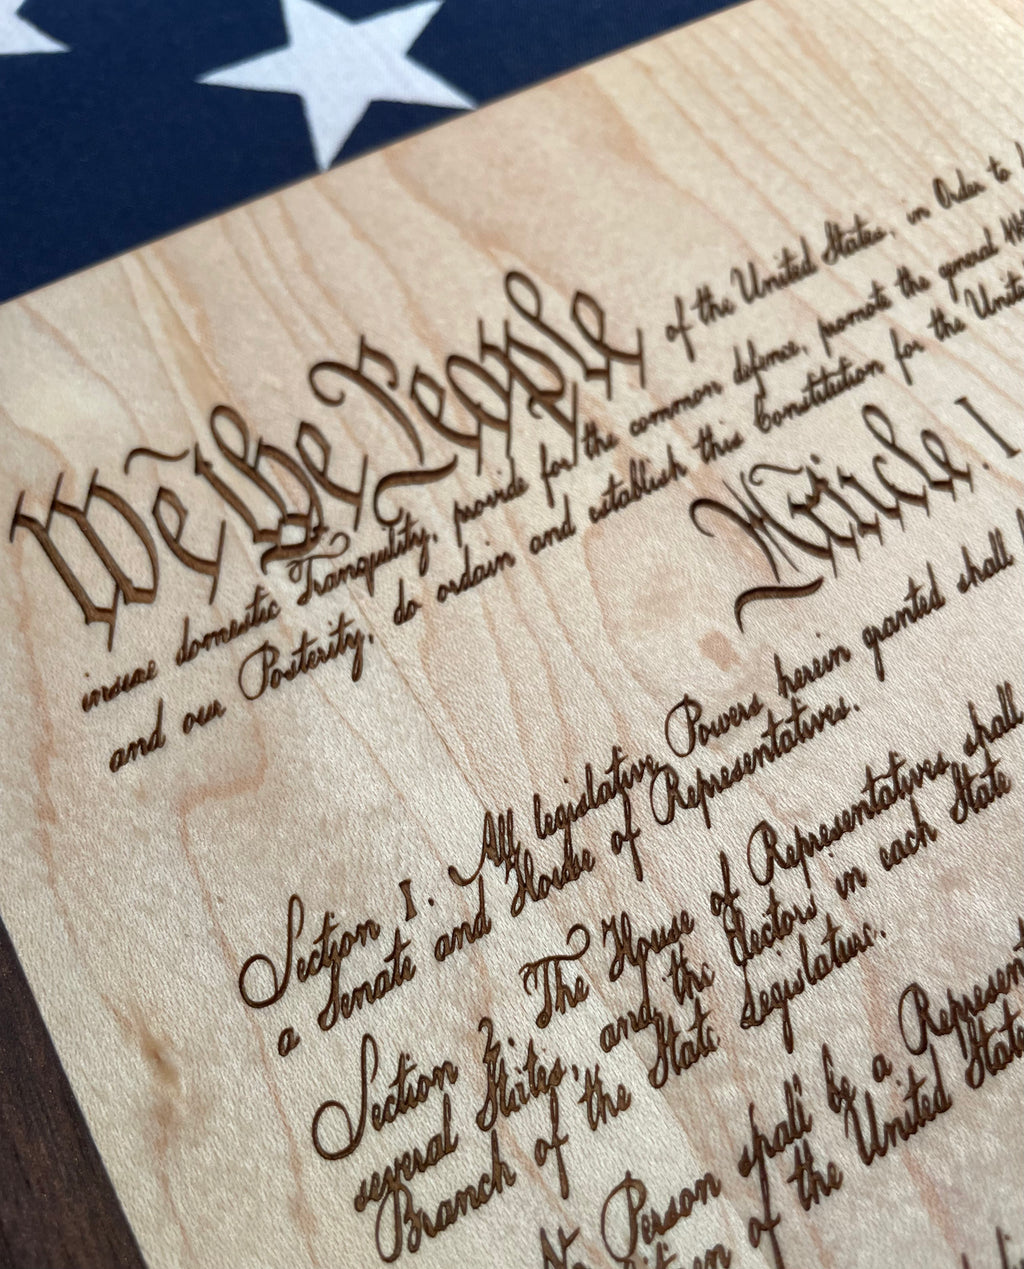 We the People of the United States, in Order to
insure domestic Tranquility, provide for the common defence, promote the general
and our Posterity, do ordain and establish this Constitution for the United
Article. I
Section 1. All legislative Powers herein granted shall
a Senate and House of Representatives.
Section 2. The House of Representatives shall
several States, and the Electors in each State
Branch of the State Legislature.
No Person shall be a Represent
of the United States